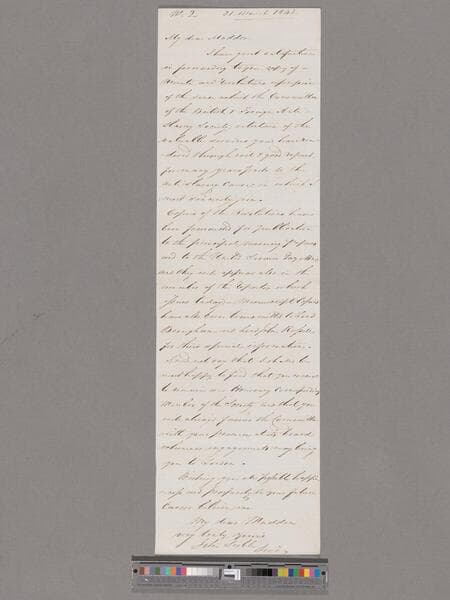 My dear Madden
I have great satisfaction
in forwarding to you copy of a
Minute and Resolution expressive
of the sense which the Committee
of the British & Foreign Anti-
Slavery Society entertain of the
valuable services you have ren-
dered through evil & good report
for many years past to the
Anti-Slavery Cause in which I
most sincerely join.
Copies of the Resolutions have
been forwarded for publication
to the principal morning papers
and to the
and they will appear also in the
number of the Reporter which
issues today. Manuscript Copies
have also been transmitted to Lord
Brougham and Lord John Russell
for their special information.
I need not say that I shall be
most happy to find that you consent
to remain an Honorary Corresponding
Member of the Society and that you
will always favour the Committee
with your presence at its board
whenever engagements may bring
you to London.
Wishing you all health happi-
ness and prosperity in your future
Career believe me
My dear Madden
very truly yours
John